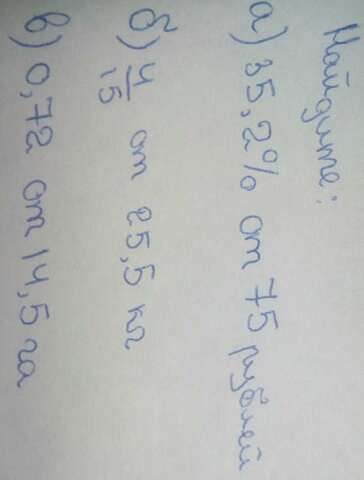 Найдите:
а) 35,2% от 75 рублей
б) 4/15 от 25,5 кг
в) 0,72 от 14,5 га